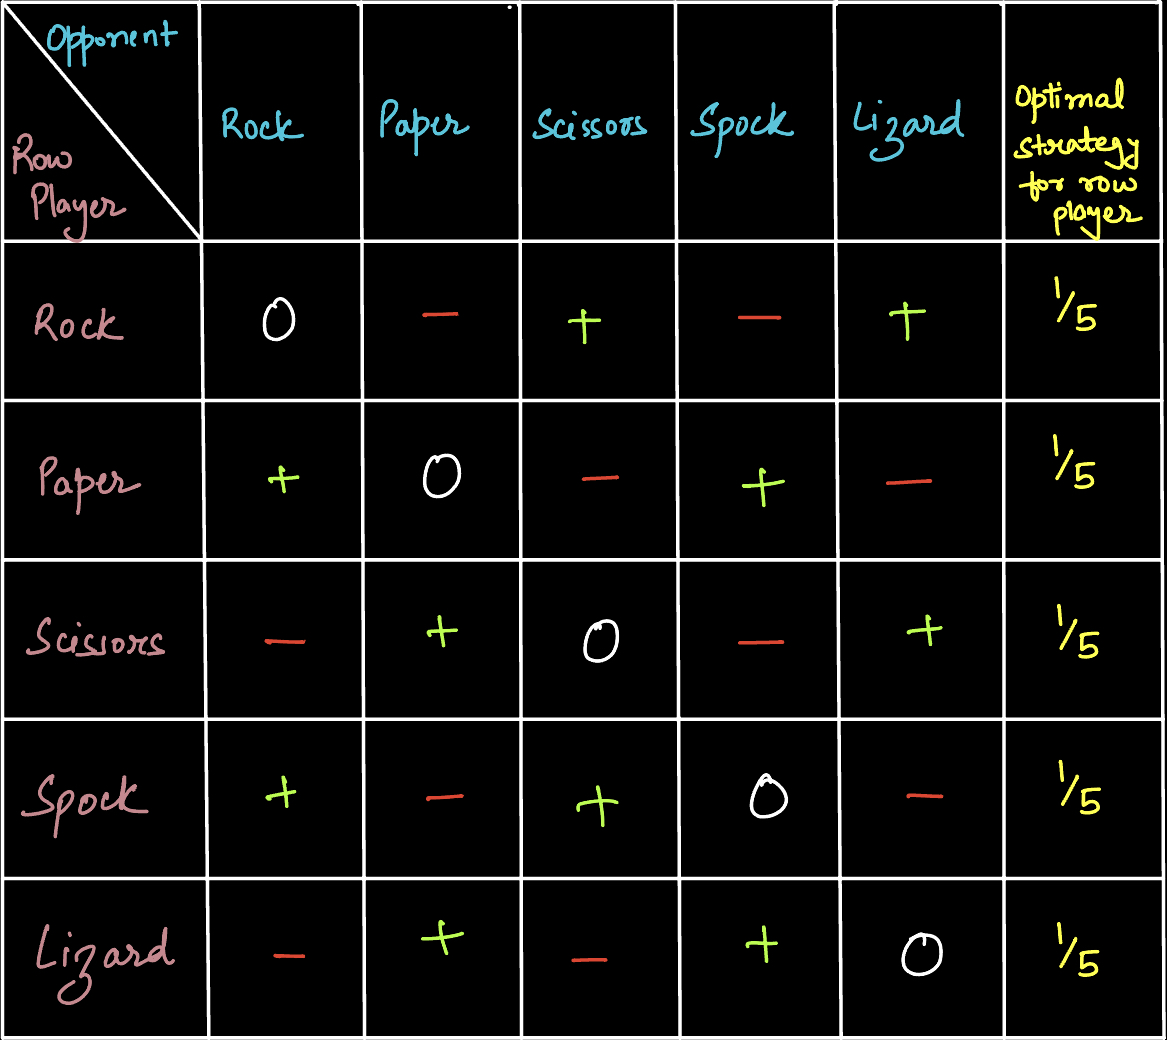 Opponent
Row
Player
Rock
Paper
Scissors
Spock
Lizard
Optimal
strategy
for row
player
Rock 0 − + − + 1/5
Paper + 0 − + − 1/5
Scissors − + 0 − + 1/5
Spock + − + 0 − 1/5
Lizard − + − + 0 1/5